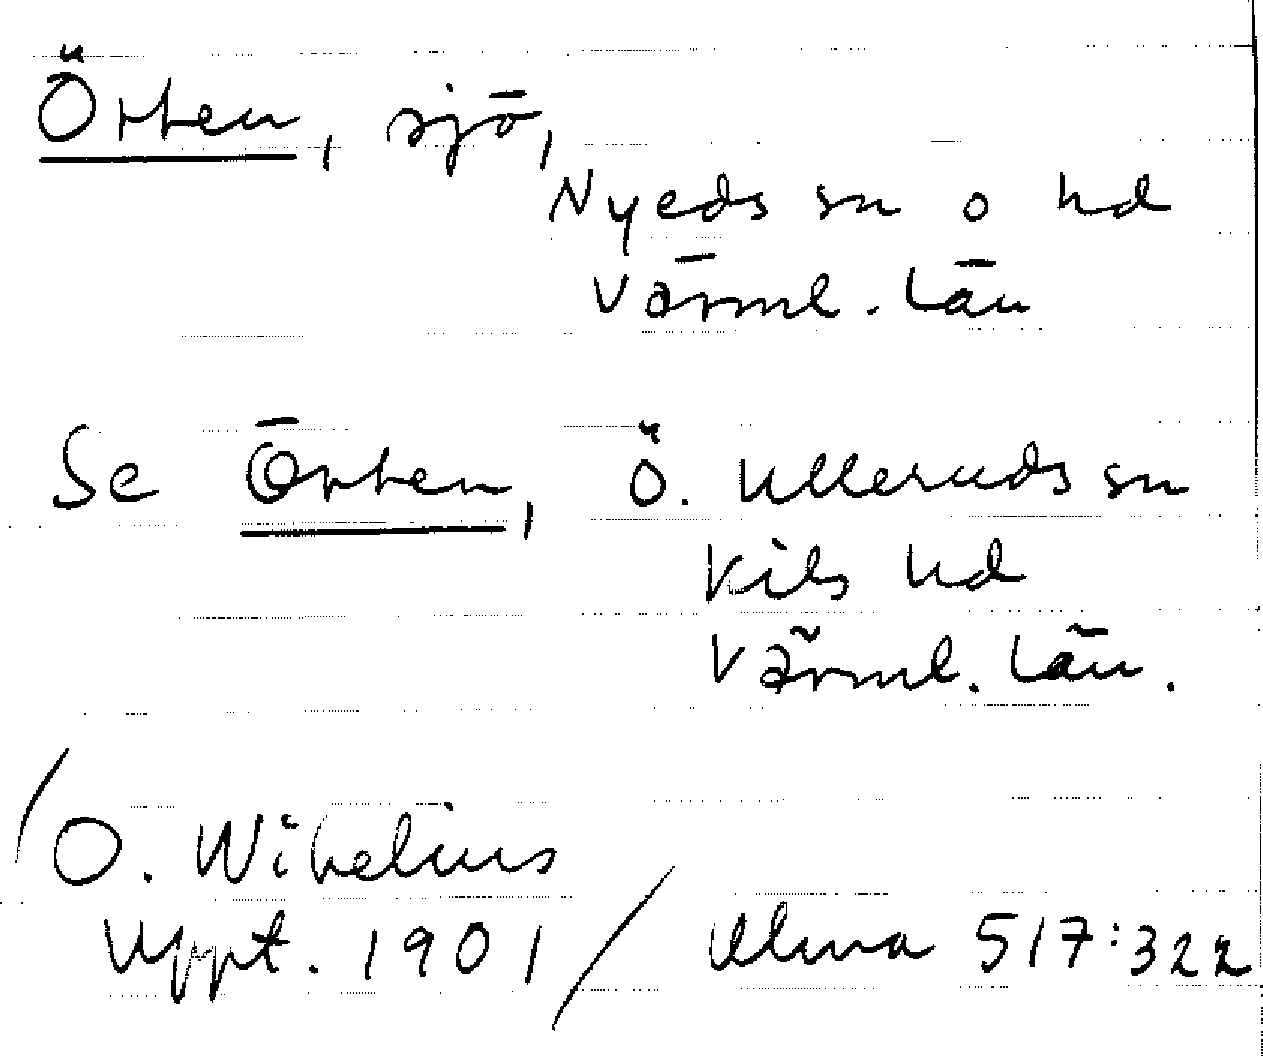 Örten, sjö,
Nyeds sn o hd
Värml. län
Se Örten, Ö. Ulleruds sn
Kils hd
Värml. län.
/O. Wihelius
Uppt. 1901/ Ulma 517:322